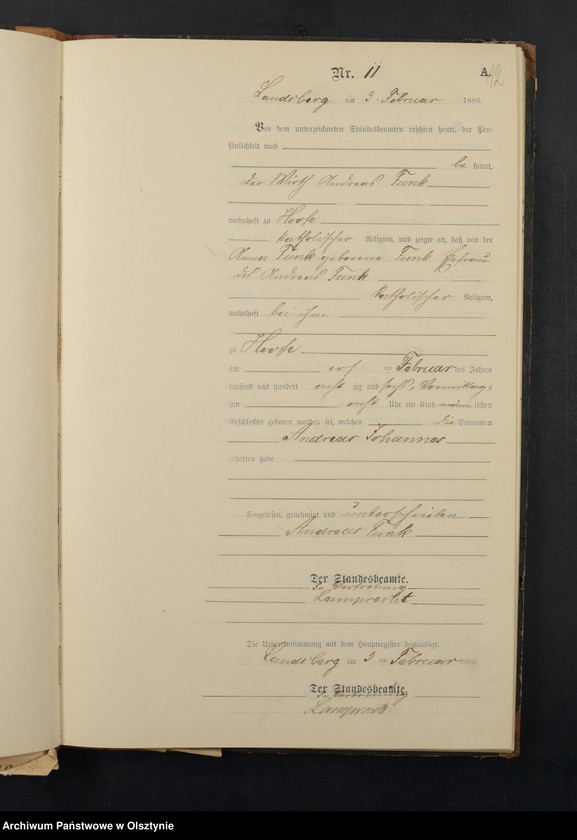 Nr. 11
A.
12
Landsberg am 3. Februar 1886.
Vor dem unterzeichneten Standesbeamten erschien heute, der Per-
sönlichkeit nach
be kannt,
der Wirth Andreas Funk
wohnhaft zu
katholischer Religion, und zeigte an, daß von der
Anna Funk geborene Funk Ehefrau
des Andreas Funk
katholischer Religion,
wohnhaft bei ihm
zu
am ersten Februar des Jahres
tausend acht hundert acht zig und sechs, Vormittags
um acht Uhr ein Kind männlichen
Geschlechts geboren worden sei, welches die Vornamen
Andreas Johannes
erhalten habe
Vorgelesen, genehmigt und unterschrieben
Andreas Funk
Der Standesbeamte.
In Vertretung
Lamprecht
Die Uebereinstimmung mit dem Hauptregister beglaubigt.
Landsberg am 3 ten Februar 1886.
Der Standesbeamte.
In Vertretung
Lamprecht
Archiwum Państwowe w Olsztynie